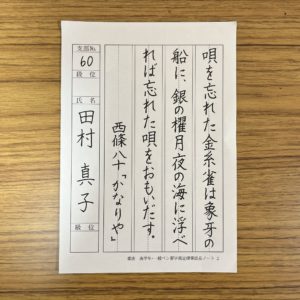 唄を忘れた金糸雀は象牙の
船に、銀の櫂月夜の海に浮べ
れば忘れた唄をおもいだす。
西條八十「かなりや」
支部No.
60
段位
氏名
田村 真子
級位